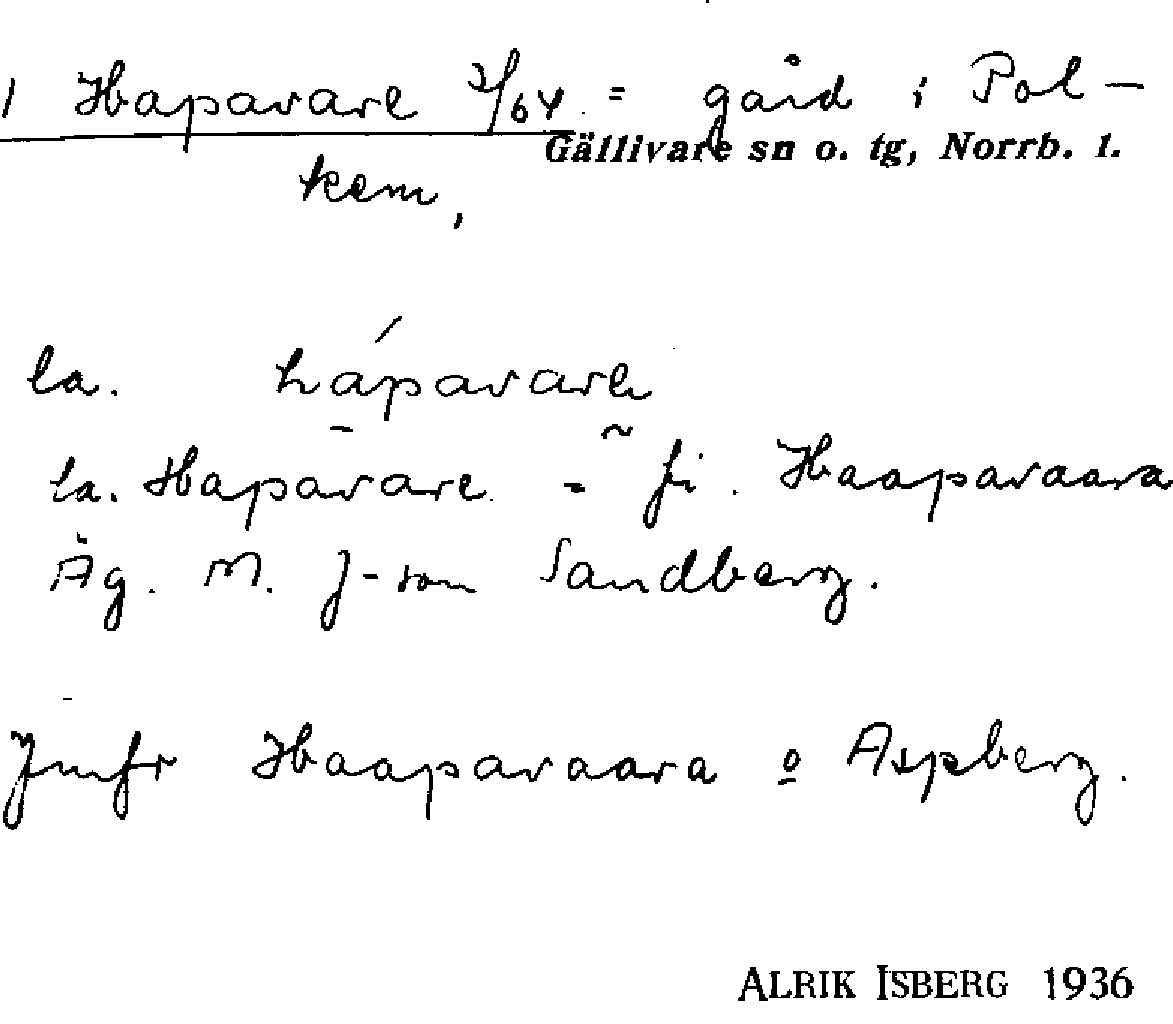 1 Haparare 3/64 = gård i Pol-
Gällivare sn o. tg, Norrb. l.
kem,
la. hápavarē
la. Hapavare = fi. Haapavaara
Äg. M. J-son Sandberg.
Jmfr Haapavaara o Aspberg.
ALRIK ISBERG 1936